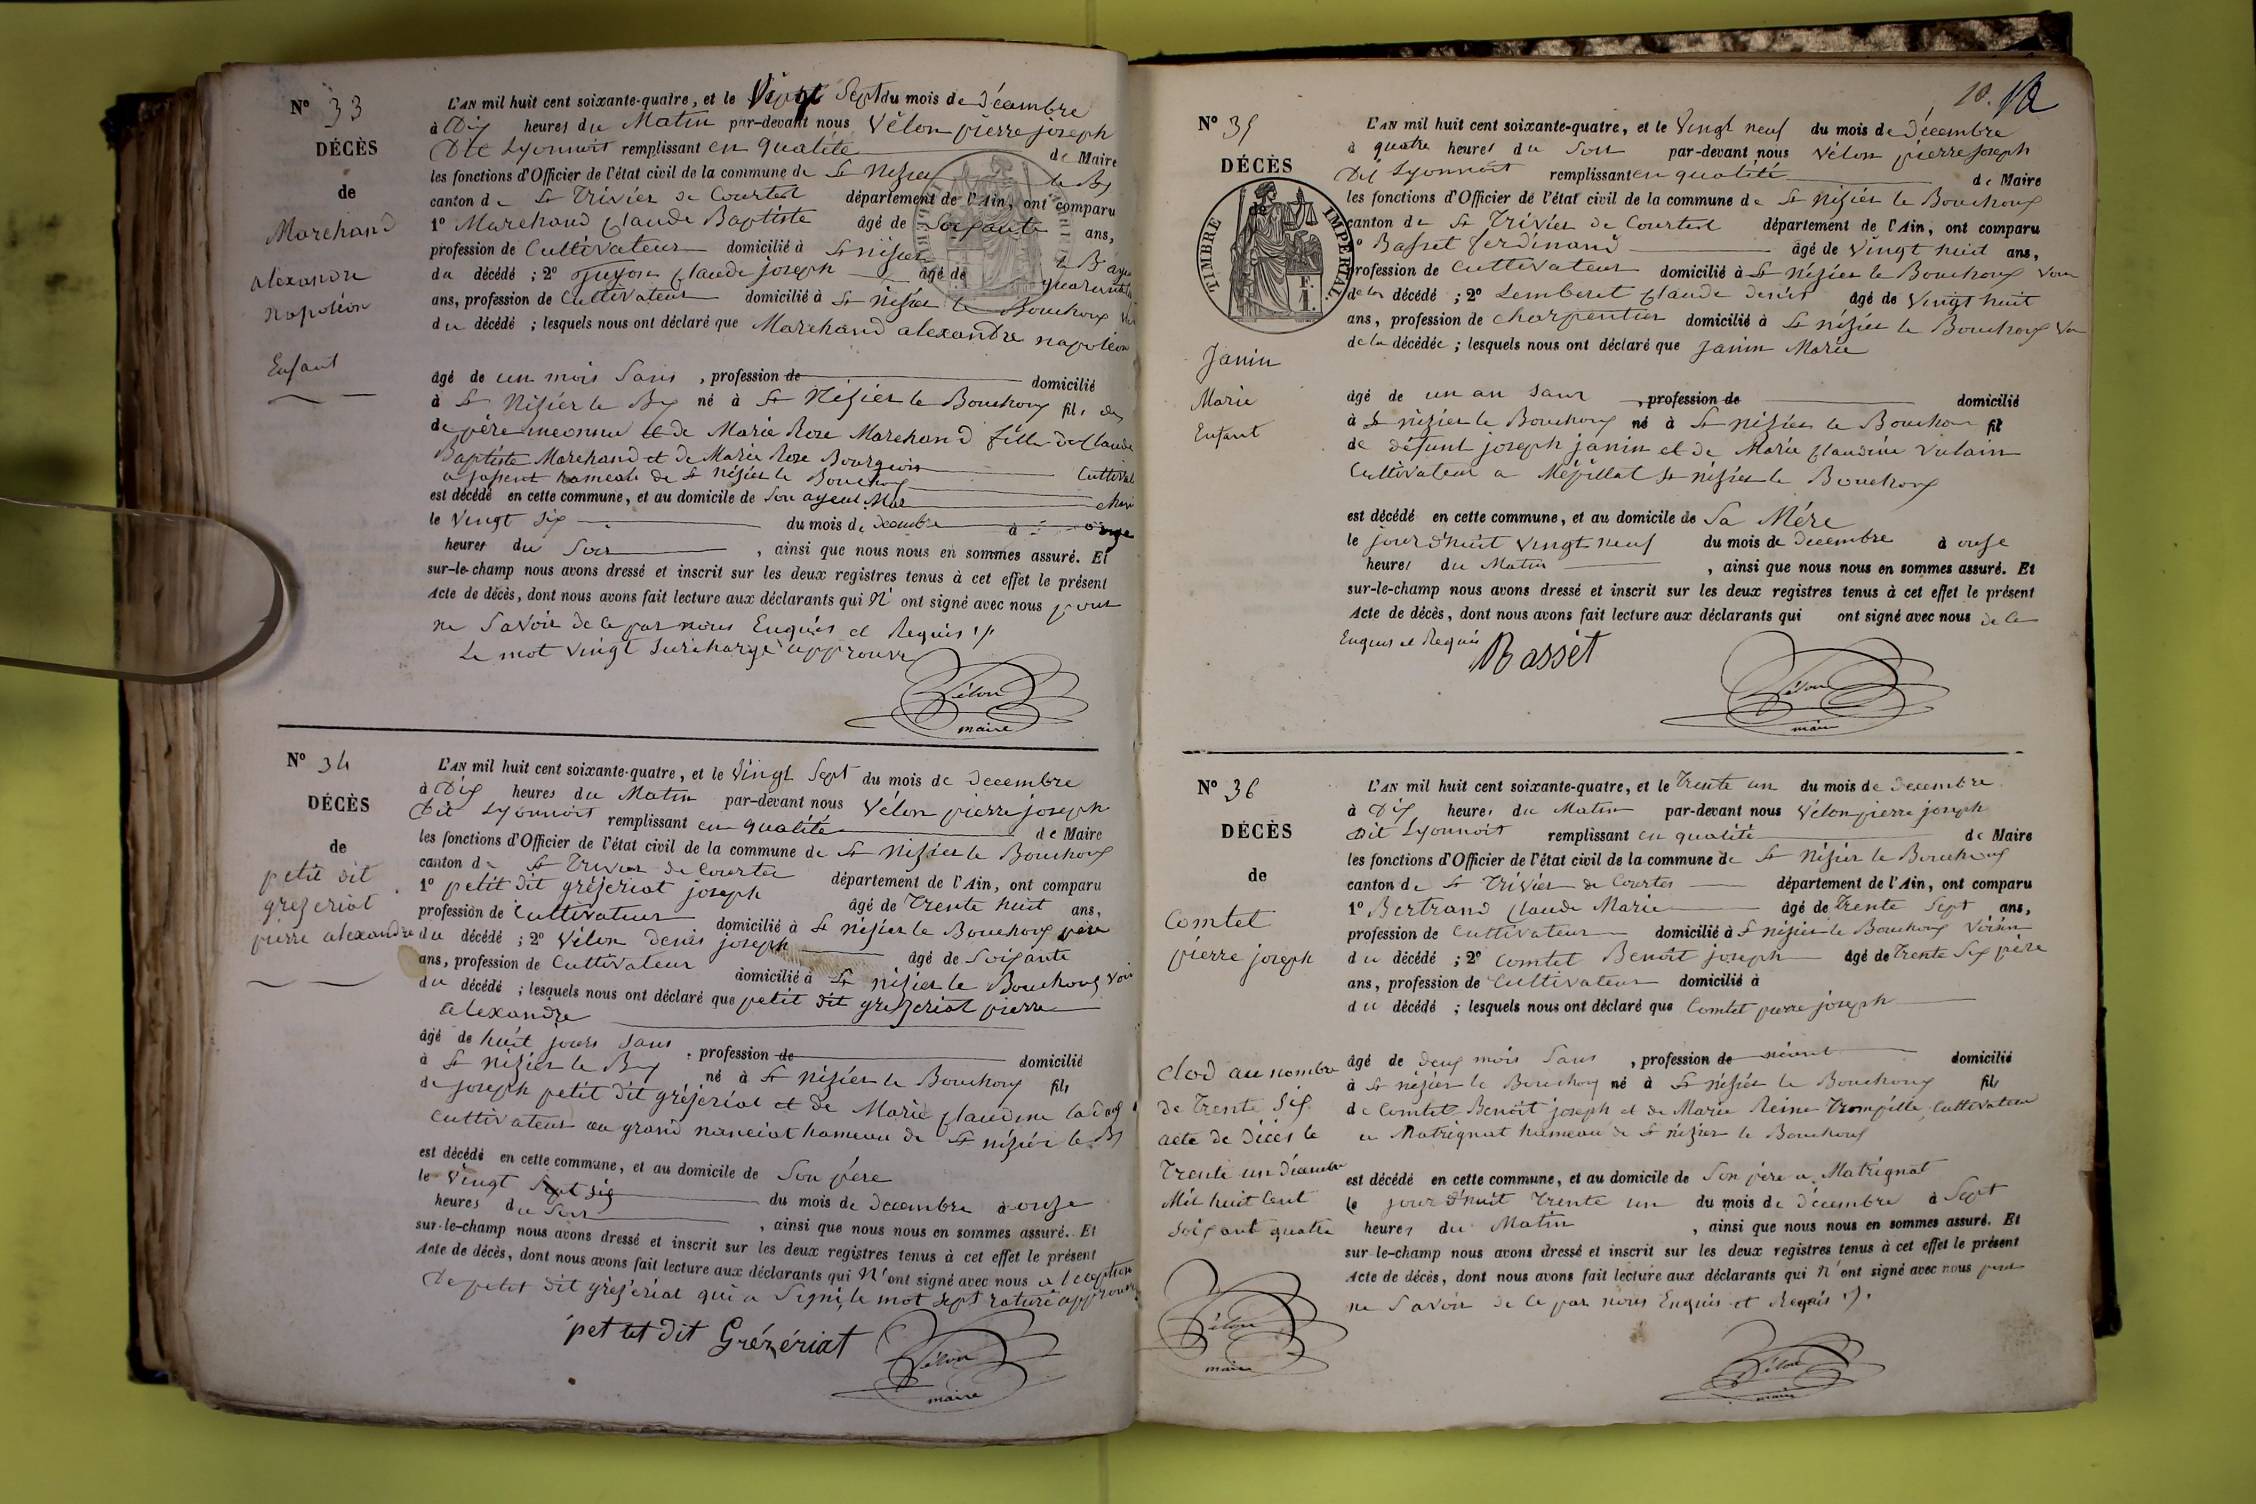 N° 33
DÉCÈS
de
Marchand
alexandre
napoléon
Enfant
L'AN mil huit cent soixante-quatre, et le Vingt Sept du mois de Décembre
à Dix heures du Matin par-devant nous Vélon pierre joseph
Dit Lyonnois remplissant en qualité de Maire
les fonctions d'Officier de l'état civil de la commune de St Nizier le Bx
canton de St Trivier de Courtes département de l'Ain, ont comparu
1° Marchand Claude Baptiste âgé de Soixante ans,
profession de Cultivateur domicilié à St nizier le B
du décédé ; 2° Guyon Claude joseph âgé de quarante
ans, profession de Cultivateur domicilié à St nizier le Bouchoux
du décédé ; lesquels nous ont déclaré que Marchand alexandre napoléon
âgé de un mois Sans , profession de domicilié
à St Nizier le Bx né à St Nizier le Bouchoux fils
de père inconnu et de Marie Rose Marchand fille de Claude
Baptiste Marchand et de Marie Rose Bourgeois Cultivat
hameau de St nizier le Bouchoux
est décédé en cette commune, et au domicile de Son ayeul Mar chan
le Vingt Six du mois de Decembre à onze
heures du Soir , ainsi que nous nous en sommes assuré. Et
sur-le-champ nous avons dressé et inscrit sur les deux registres tenus à cet effet le présent
Acte de décès, dont nous avons fait lecture aux déclarants qui N' ont signé avec nous pour
ne Savoir de ce par nous Enquis et Requis ./.
Le mot vingt Surchargé approuvé
Vélon
maire
N° 34
DÉCÈS
de
petit dit
grezeriat
pierre alexandre
L'AN mil huit cent soixante-quatre, et le Vingt Sept du mois de Decembre
à Dix heures du Matin par-devant nous Vélon pierre joseph
Dit Lyonnois remplissant en qualité de Maire
les fonctions d'Officier de l'état civil de la commune de St Nizier le Bouchoux
canton de St Trivier de Courtes département de l'Ain, ont comparu
1° petit dit grézeriat joseph âgé de Trente huit ans,
profession de Cultivateur domicilié à St nizier le Bouchoux père
du décédé ; 2° Vélon Denis joseph âgé de Soixante
ans, profession de Cultivateur domicilié à St nizier le Bouchoux Voi
du décédé ; lesquels nous ont déclaré que petit dit grezeriat pierre
alexandre
âgé de huit jours Sans , profession de domicilié
à St nizier le Bx né à St nizier le Bouchoux fils
de joseph petit dit grézeriat et de Marie Claudine
Cultivateur au grand hameau de St nizier le Bx
est décédé en cette commune, et au domicile de Son père
le Vingt Sept Six du mois de Decembre à onze
heures du Soir , ainsi que nous nous en sommes assuré. Et
sur-le-champ nous avons dressé et inscrit sur les deux registres tenus à cet effet le présent
Acte de décès, dont nous avons fait lecture aux déclarants qui N' ont signé avec nous à l'exception
De petit dit grézeriat qui a Signé, le mot Sept raturé approuvé
petit dit Grézériat
Vélon
maire
10.
N° 35
DÉCÈS
de
TIMBRE IMPÉRIAL.
1 F.
Janin
Marie
Enfant
L'AN mil huit cent soixante-quatre, et le Vingt neuf du mois de Décembre
à quatre heures du Soir par-devant nous Vélon pierre joseph
Dit Lyonnois remplissant en qualité de Maire
les fonctions d'Officier de l'état civil de la commune de St Nizier le Bouchoux
canton de St Trivier de Courtes département de l'Ain, ont comparu
1° Basset ferdinand âgé de Vingt huit ans,
profession de Cultivateur domicilié à St Nizier le Bouchoux Voisin
de la décédé ; 2° Lemberet Claude denis âgé de Vingt huit
ans, profession de charpentier domicilié à St nizier le Bouchoux Voi
de la décédée ; lesquels nous ont déclaré que Janin Marie
âgé de un an Sans , profession de domicilié
à St nizier le Bouchoux né à St nizier le Bouchoux fil
de défunt joseph janin et de Marie Claudine Vulain
Cultivateur a Mépillat St nizier le Bouchoux
est décédé en cette commune, et au domicile de Sa Mère
le jour d'huit Vingt neuf du mois de Decembre à onze
heures du Matin , ainsi que nous nous en sommes assuré. Et
sur-le-champ nous avons dressé et inscrit sur les deux registres tenus à cet effet le présent
Acte de décès, dont nous avons fait lecture aux déclarants qui ont signé avec nous de ce
Enquis et Requis
Basset
Vélon
maire
N° 36
DÉCÈS
de
Comtet
pierre joseph
Clod au nombre
de Trente Six
acte de Décès le
Trente un Décembre
Mil huit Cent
Soixant quatre
Vélon
maire
L'AN mil huit cent soixante-quatre, et le Trente un du mois de Decembre
à Dix heures du Matin par-devant nous Vélon pierre joseph
Dit Lyonnois remplissant en qualité de Maire
les fonctions d'Officier de l'état civil de la commune de St Nizier le Bouchoux
canton de St Trivier de Courtes département de l'Ain, ont comparu
1° Bertrand Claude Marie âgé de Trente Sept ans,
profession de Cultivateur domicilié à St nizier le Bouchoux Voisin
du décédé ; 2° Comtet Benoît joseph âgé de Trente Six père
ans, profession de Cultivateur domicilié à
du décédé ; lesquels nous ont déclaré que Comtet pierre joseph
âgé de Deux mois Sans , profession de néant domicilié
à St nizier le Bouchoux né à St nizier le Bouchoux fils
de Comtet Benoît joseph et de Marie Reine Trompille, Cultivateur
a Matrignat hameau de St nizier le Bouchoux
est décédé en cette commune, et au domicile de Son père a Matrignat
le jour d'huit Trente un du mois de Décembre à Sept
heures du Matin , ainsi que nous nous en sommes assuré. Et
sur-le-champ nous avons dressé et inscrit sur les deux registres tenus à cet effet le présent
Acte de décès, dont nous avons fait lecture aux déclarants qui N' ont signé avec nous pour
ne Savoir de ce par nous Enquis et Requis ./.
Vélon
maire